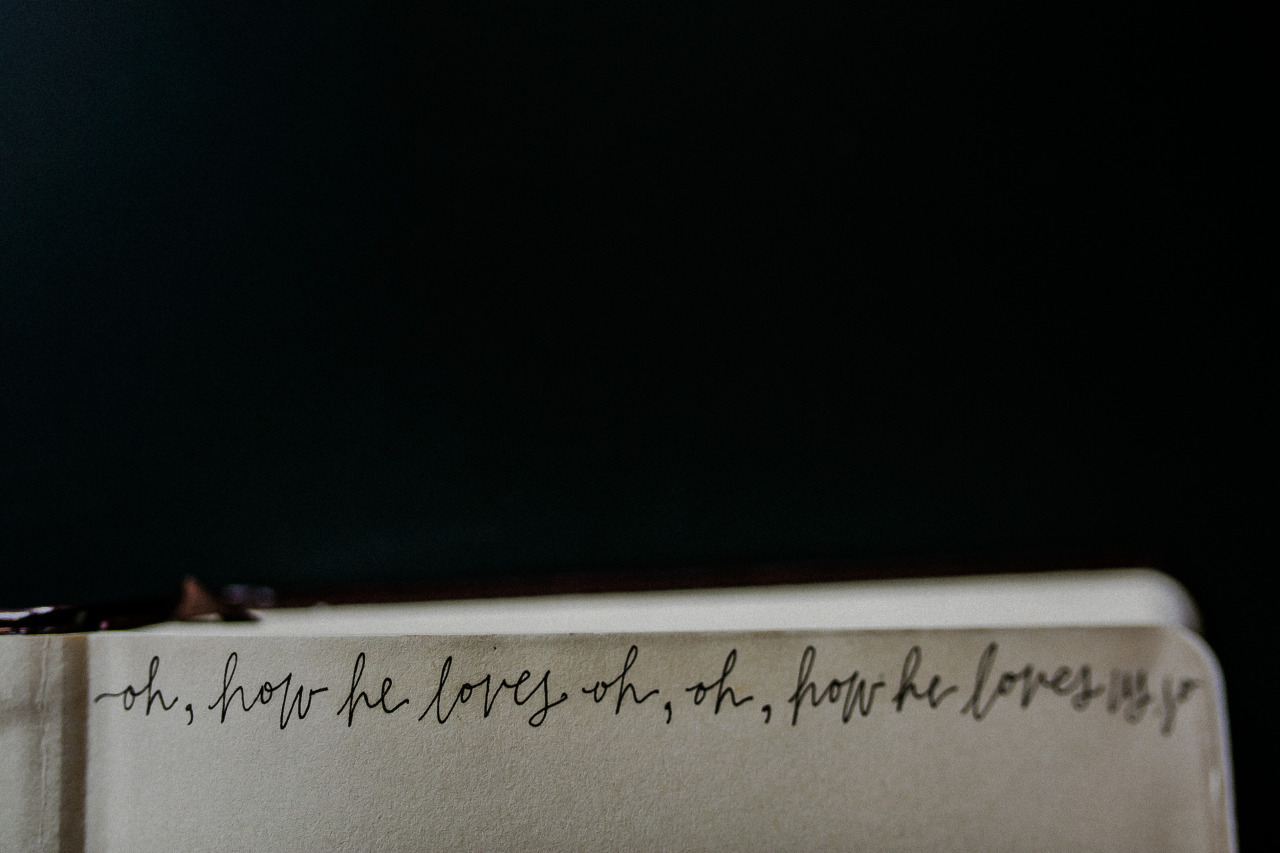 oh, how he loves oh, oh, how he loves us, so